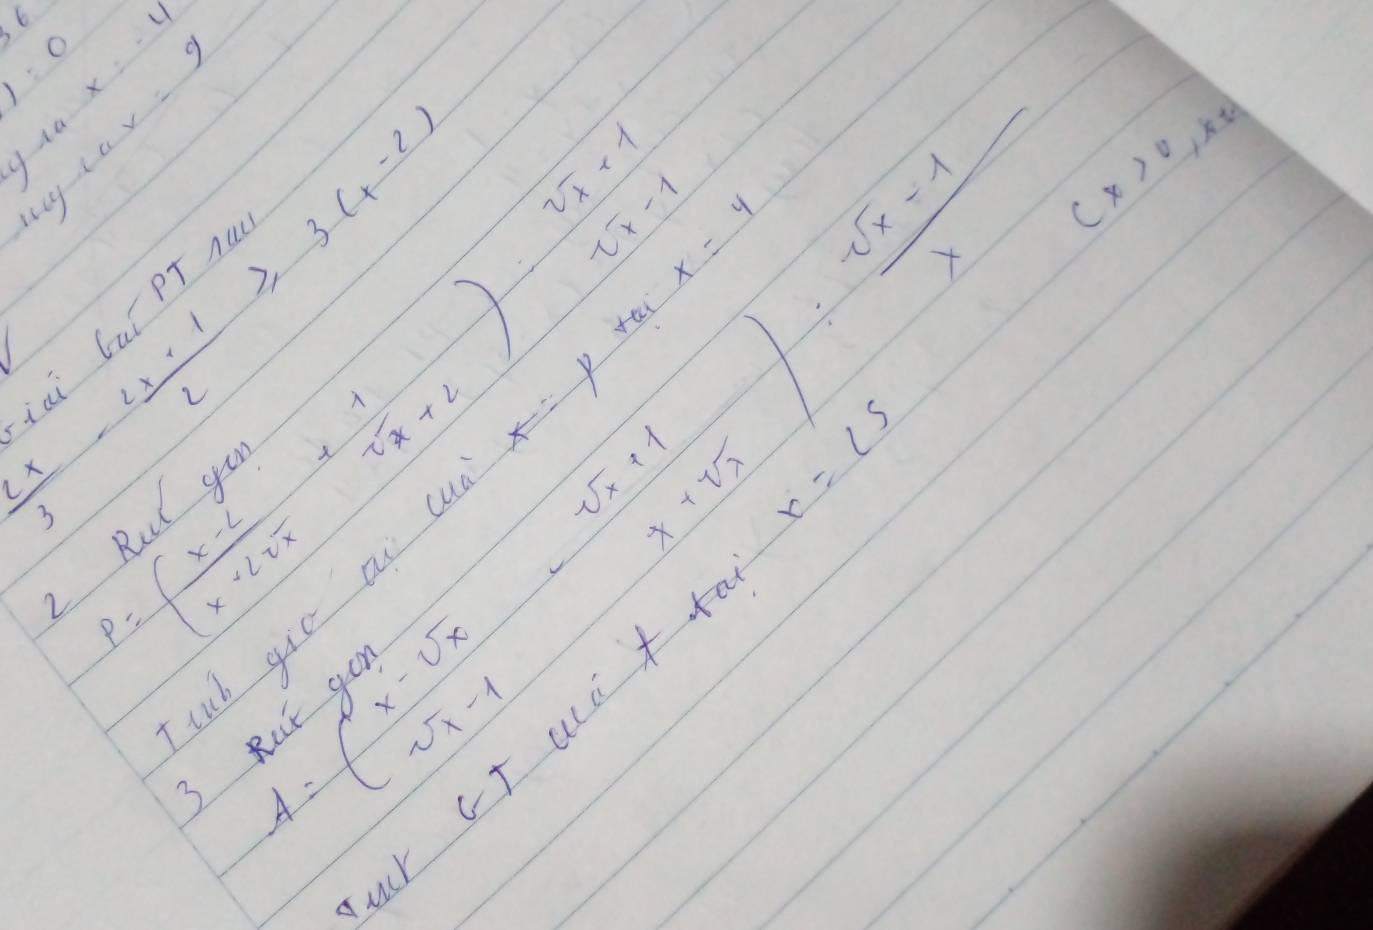 36
) = 0
x = -4
x = 9
Giải bất PT sau
2x/3 - (2x + 1)/2 ≥ 3(x - 2)
2 Rút gọn
P = ( (x - 2)/(x + 2√x) + 1/(√x + 2) ) . (√x + 1)/(√x - 1)
Tính giá trị của P tại x = 4
3 Rút gọn
A = ( (x - √x)/(√x - 1) - (√x + 1)/(x + √x) ) : (√x - 1)/x (x > 0,
Tính GT của A tại x = 25